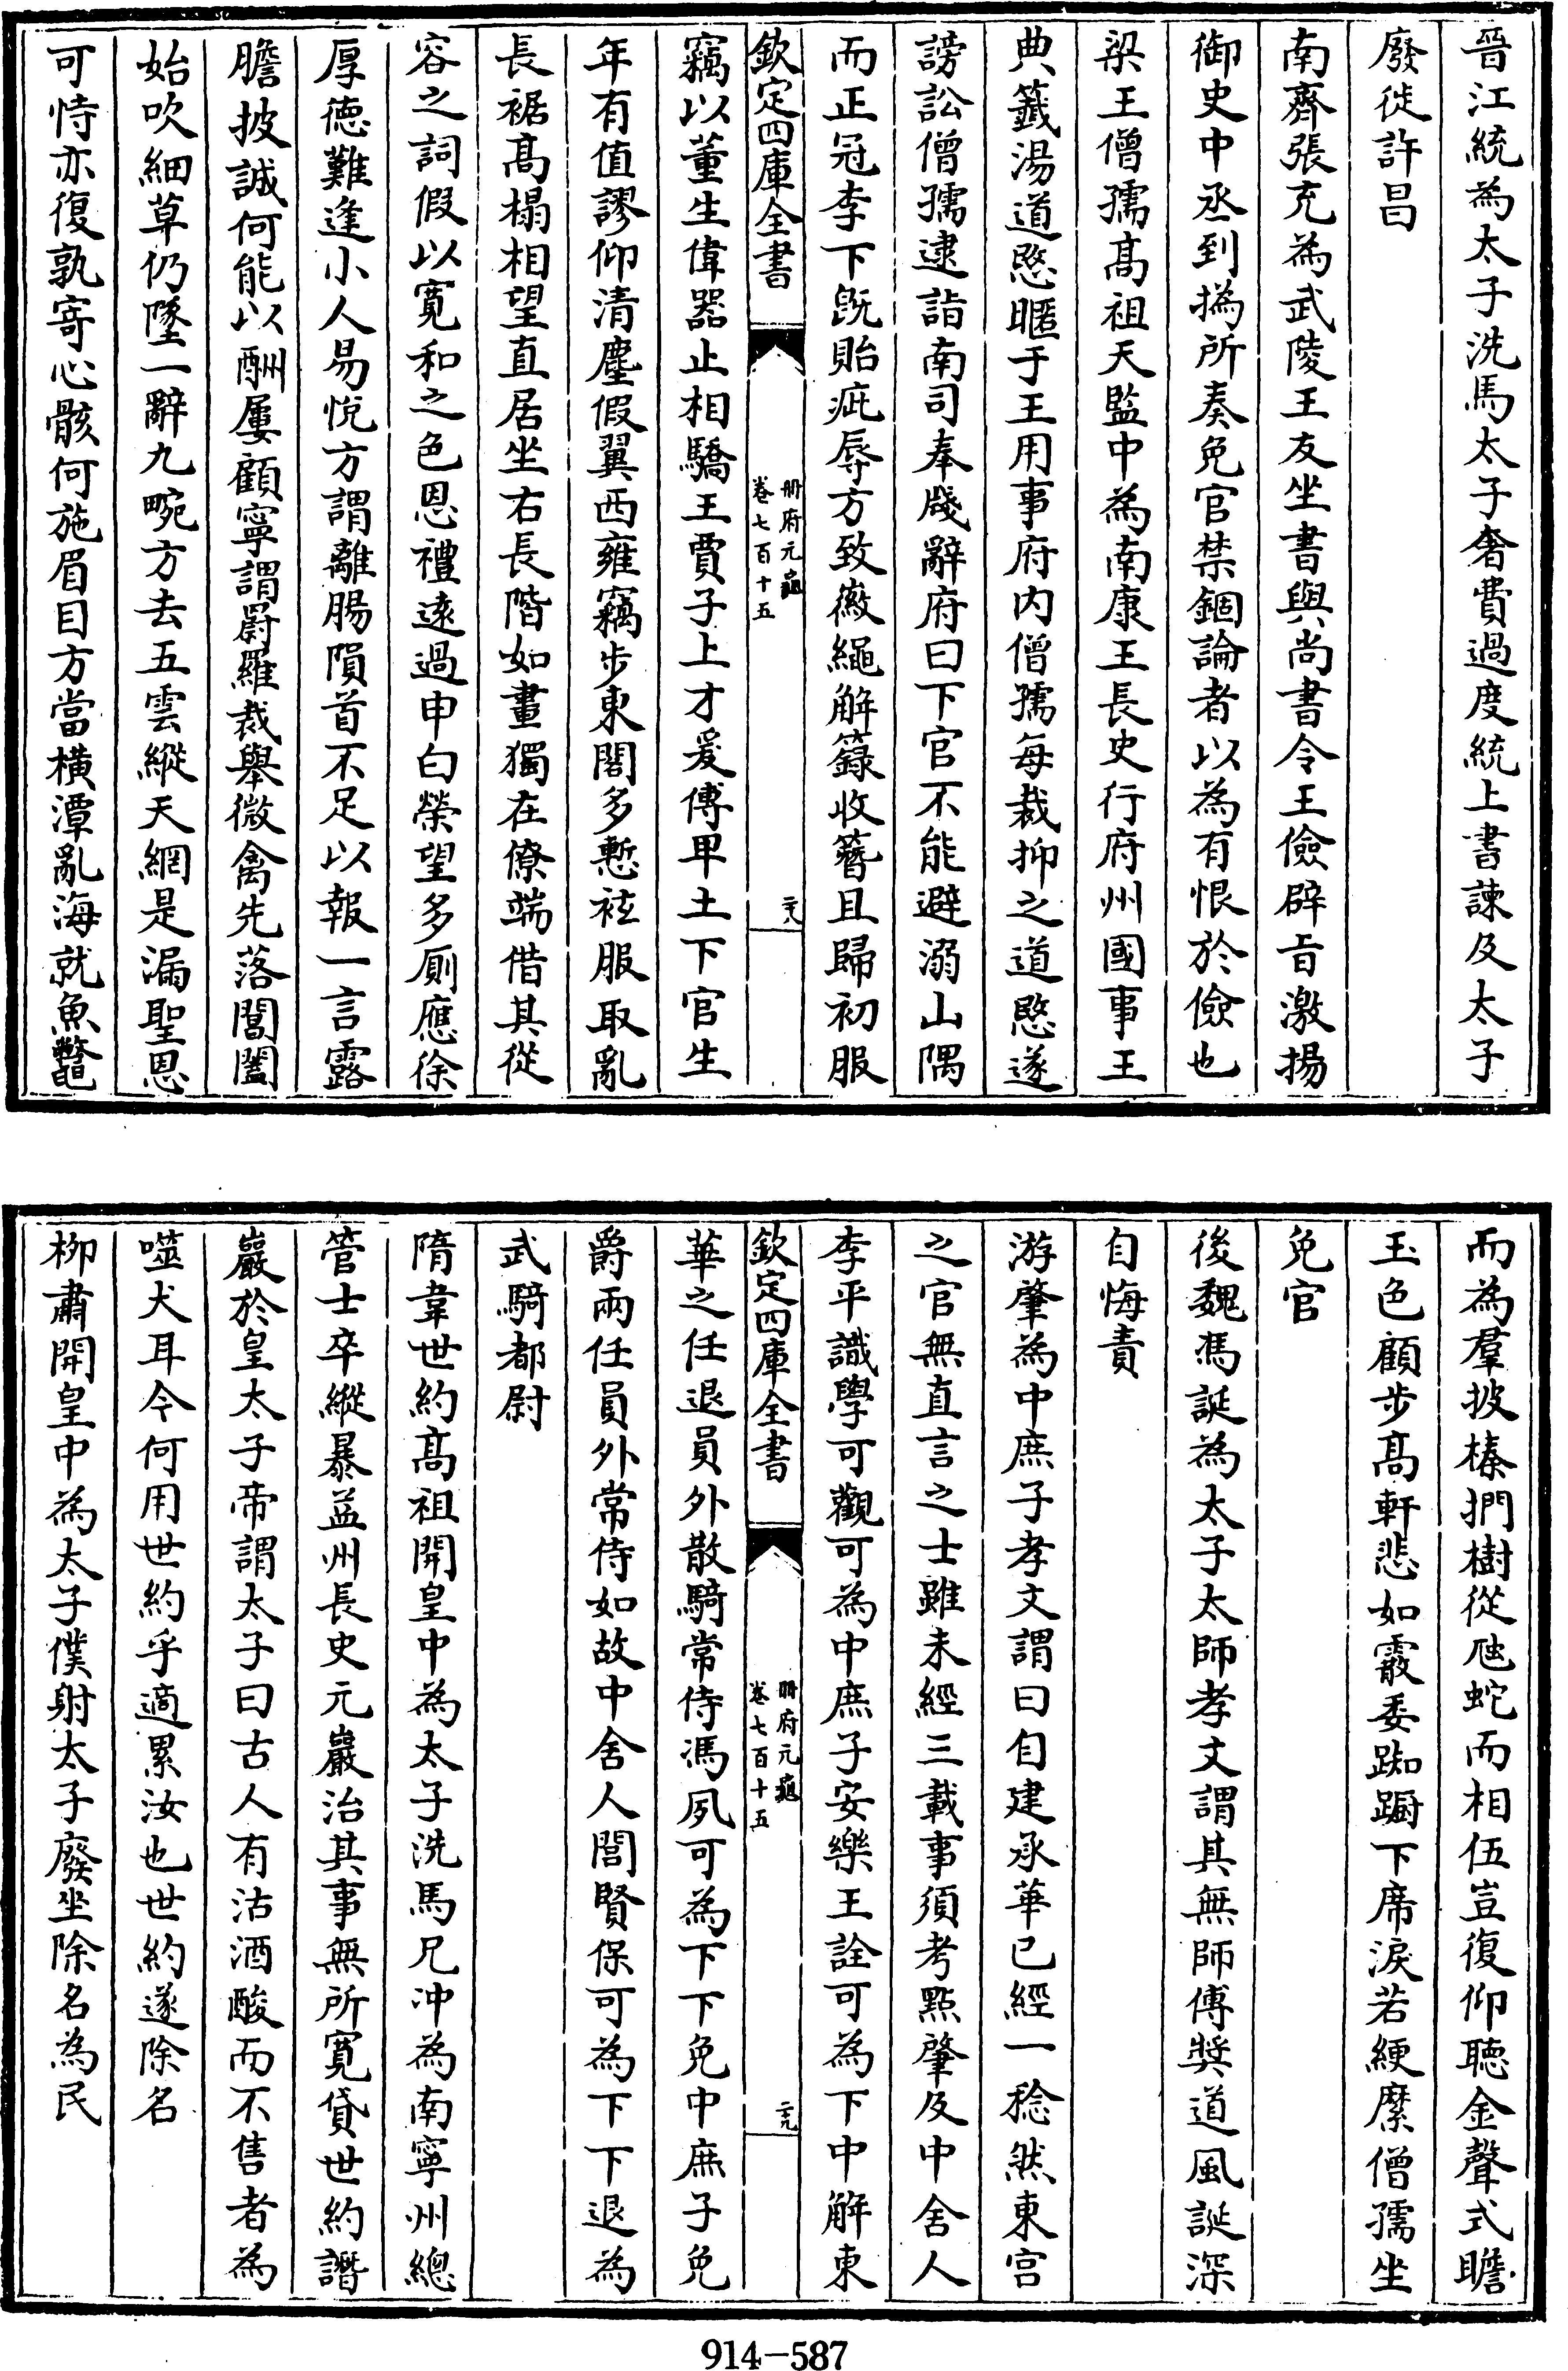 晉江統為太子洗馬太子奢費過度統上書諫及太子
廢徙許昌
南齊張充為武陵王友坐書與尚書令王儉辟㫖激揚
御史中丞到撝所奏免官禁錮論者以為有恨於儉也
梁王僧孺髙祖天監中為南康王長史行府州國事王
典籤湯道愍暱于王用事府内僧孺每裁抑之道愍遂
謗訟僧孺逮詣南司奉牋辭府曰下官不能避溺山隅
而正冠李下旣貽疵辱方致徽䋲解籙收簪且歸初服
欽定四庫全書
冊府元龜
卷七百十五
二十八
竊以董生偉器止相驕王賈子上才爰傅卑土下官生
年有值謬仰清塵假翼西雍竊步東閣多慙袨服取亂
長裾髙榻相望直居坐右長階如畫獨在僚端借其從
容之詞假以寛和之色恩禮逺過申白榮望多厠應徐
厚徳難逢小人易悅方謂離腸隕首不足以報一言露
膽披誠何能以酬屢顧寧謂罻羅裁舉微禽先落閶闔
始吹細草仍墜一辭九畹方去五雲縱天網是漏聖恩
可恃亦復孰寄心骸何施眉目方當橫潭亂海就魚鼈
而為羣披榛捫樹從虺蛇而相伍豈復仰聴金聲式瞻
玉色顧步髙軒悲如霰委踟蹰下席淚若綆縻僧孺坐
免官
後魏馮誕為太子太師孝文謂其無師傅奬道風誕深
自悔責
游肇為中庶子孝文謂曰自建承華已經一稔然東宫
之官無直言之士雖未經三載事須考㸃肇及中舍人
李平識學可觀可為中庶子安樂王詮可為下中解東
欽定四庫全書
冊府元龜
卷七百十五
二十九
華之任退員外散騎常侍馮夙可為下下免中庶子免
爵兩任員外常侍如故中舍人閭賢保可為下下退為
武騎都尉
隋韋世約髙祖開皇中為太子洗馬兄冲為南寧州總
管士卒縱暴益州長史元巖治其事無所寛貸世約譖
巖於皇太子帝謂太子曰古人有沽酒酸而不售者為
噬犬耳今何用世約乎適累汝也世約遂除名
栁肅開皇中為太子僕射太子廢坐除名為民
914-587